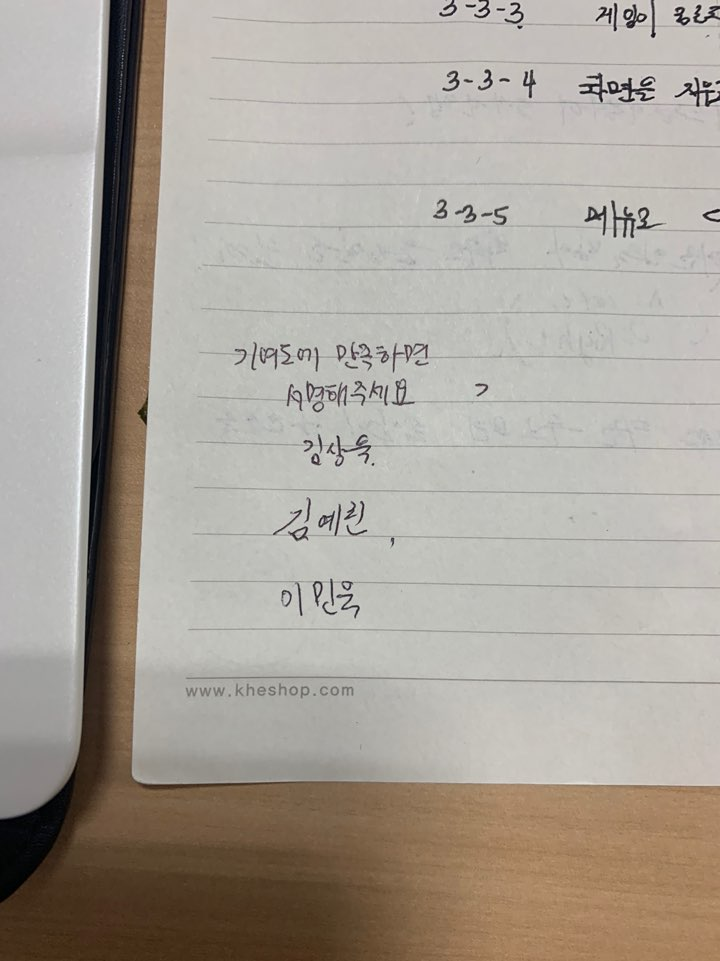 3-3-3 게임이
3-3-4 화면을
3-3-5 메뉴로
기여도에 만족하면
서명해주세요
김상욱.
김예린,
이민욱
www.kheshop.com